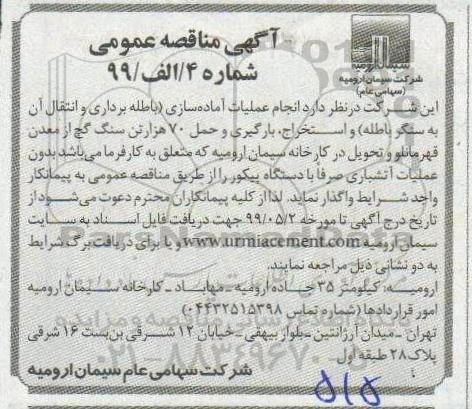 آگهی مناقصه عمومی
شماره ۴/الف/۹۹
سیمان ارومیه
شرکت سیمان ارومیه
(سهامی عام)
این شرکت در نظر دارد انجام عملیات آماده‌سازی (باطله برداری و انتقال آن
به سنگر باطله) و استخراج، بارگیری و حمل ۷۰ هزار تن سنگ گچ از معدن
قهرمانلو و تحویل در کارخانه سیمان ارومیه که متعلق به کارفرما می‌باشد بدون
عملیات آتشباری صرفا با دستگاه پیکور را از طریق مناقصه عمومی به پیمانکار
واجد شرایط واگذار نماید. لذا از کلیه پیمانکاران محترم دعوت می‌شود از
تاریخ درج آگهی تا مورخه ۹۹/۰۵/۲ جهت دریافت فایل اسناد به سایت
سیمان ارومیه www.urmiacement.com و یا برای دریافت برگ شرایط
به دو نشانی ذیل مراجعه نمایند.
ارومیه: کیلومتر ۳۵ جاده ارومیه ـ مهاباد ـ کارخانه سیمان ارومیه
امور قراردادها (شماره تماس ۰۴۴۳۲۵۱۵۳۹۸)
تهران ـ میدان آرژانتین ـ بلوار بیهقی ـ خیابان ۱۲ شرقی بن‌بست ۱۶ شرقی
پلاک ۲۸ طبقه اول
شرکت سهامی عام سیمان ارومیه
۰۲۱-۸۸۳۴۹۶۷۰